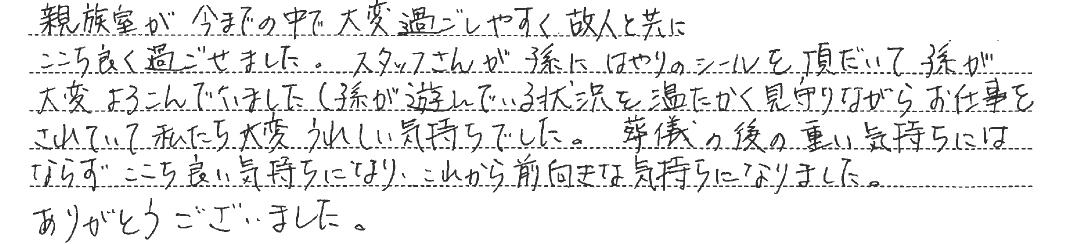 親族室が今までの中で大変過ごしやすく故人と共に
ここち良く過ごせました。スタッフさんが孫にはやりのシールを頂だいて孫が
大変よろこんでいましたし孫が遊んでいる状況を温たかく見守りながらお仕事を
されていて私たち大変うれしい気持ちでした。葬儀の後の重い気持ちには
ならずここち良い気持ちになり、これから前向きな気持ちになりました。
ありがとうございました。